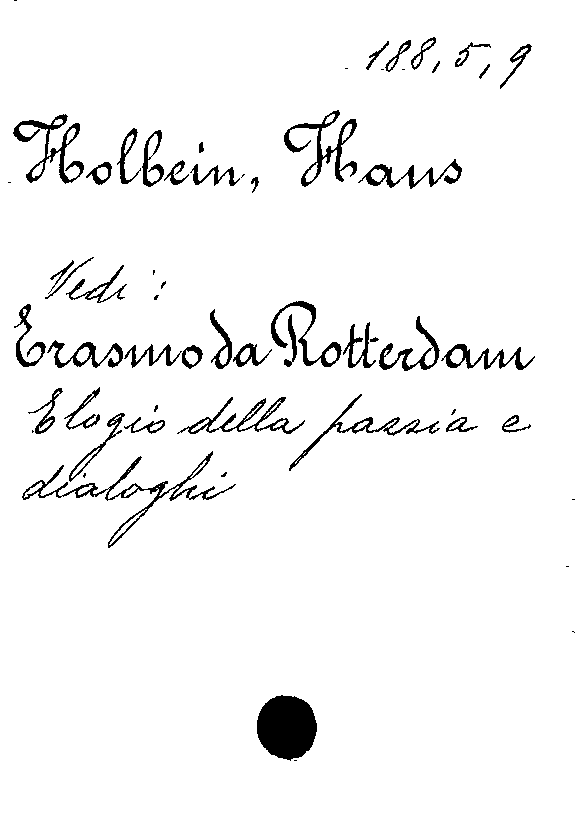 188, 5, 9
Holbein, Hans
Vedi :
Erasmo da Rotterdam
Elogio della pazzia e
dialoghi